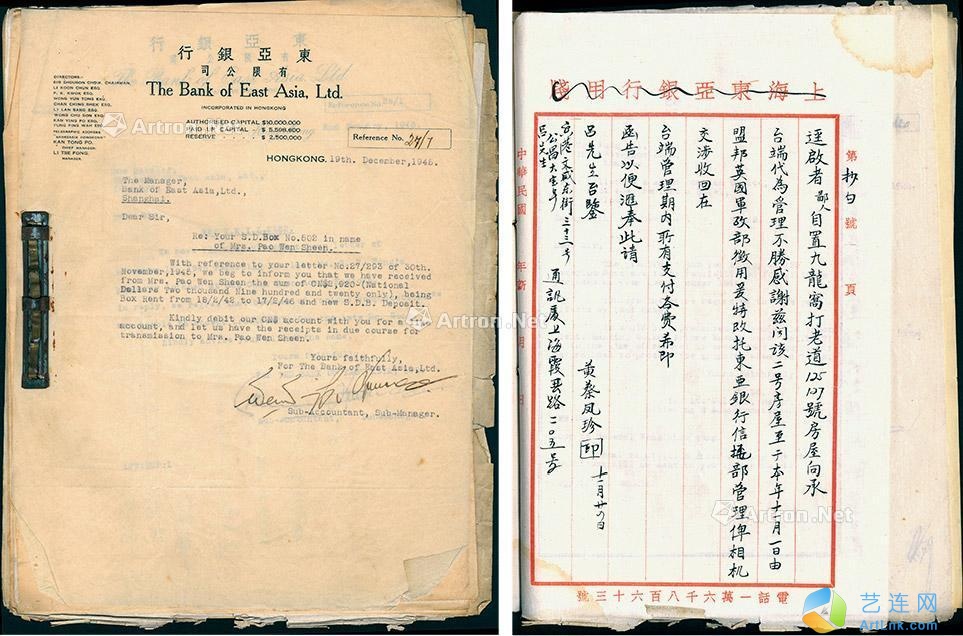 行銀亞東
司公限有
The Bank of East Asia, Ltd.
INCORPORATED IN HONGKONG
DIRECTORS:-
SIR SHOUSON CHOW, CHAIRMAN.
LI KOON CHUN ESQ.
P. K. KWOK ESQ.
WONG YUN TONG ESQ.
CHAN CHING SHEK ESQ.
LI LAN SANG ESQ.
WONG CHU SON ESQ.
KAN YING PO ESQ.
FUNG PING WAH ESQ.
TELEGRAPHIC ADDRESS
KAN TONG PO.
CHIEF MANAGER.
LI TSE FONG.
MANAGER.
AUTHORISED CAPITAL $10,000,000
PAID UP CAPITAL - $ 5,598,600
RESERVE - - - $ 2,500,000
Reference No. 27/1
HONGKONG, 19th. December, 1945.
The Manager,
Bank of East Asia, Ltd.,
Shanghai.
Dear Sir,
Re: Your S.D.Box No.502 in name
of Mrs. Pao Wen Sheen.
With reference to your letter No.27/293 of 30th.
November, 1945, we beg to inform you that we have received
from Mrs. Pao Wen Sheen the sum of CN$2,920-(National
Dollars Two thousand Nine hundred and twenty only), being
Box Rent from 18/2/42 to 17/2/46 and new S.D.B. Deposit.
Kindly debit our CN$ account with you for a/c
account, and let us have the receipts in due course for
transmission to Mrs. Pao Wen Sheen.
Yours faithfully,
For The Bank of East Asia, Ltd.
Sub-Accountant, Sub-Manager.
Artron.Net
Artron.Net
箋用行銀亞東海上
第抄白號 頁
逕啟者鄙人自置九龍窩打老道125 127號房屋向承
台端代為管理不勝感謝茲闻該二號房屋至于本年十一月一日由
盟邦英國軍政部徵用爰特改托東亞銀行信托部管理俾相机
交涉收回在
台端管理期內所有支付各費希即
函告以便滙奉此請
呂先生台鑒
黃蔡凤珍 印 十一月廿六日
香港文咸东街三十三号 通訊處上海霞飛路一〇三五号
公昌大宝号
呂先生
中華民國 年 月 日
號三十六百八千六萬一話電
Artron.Net
Artron.Net
艺连网
ArtLink.com